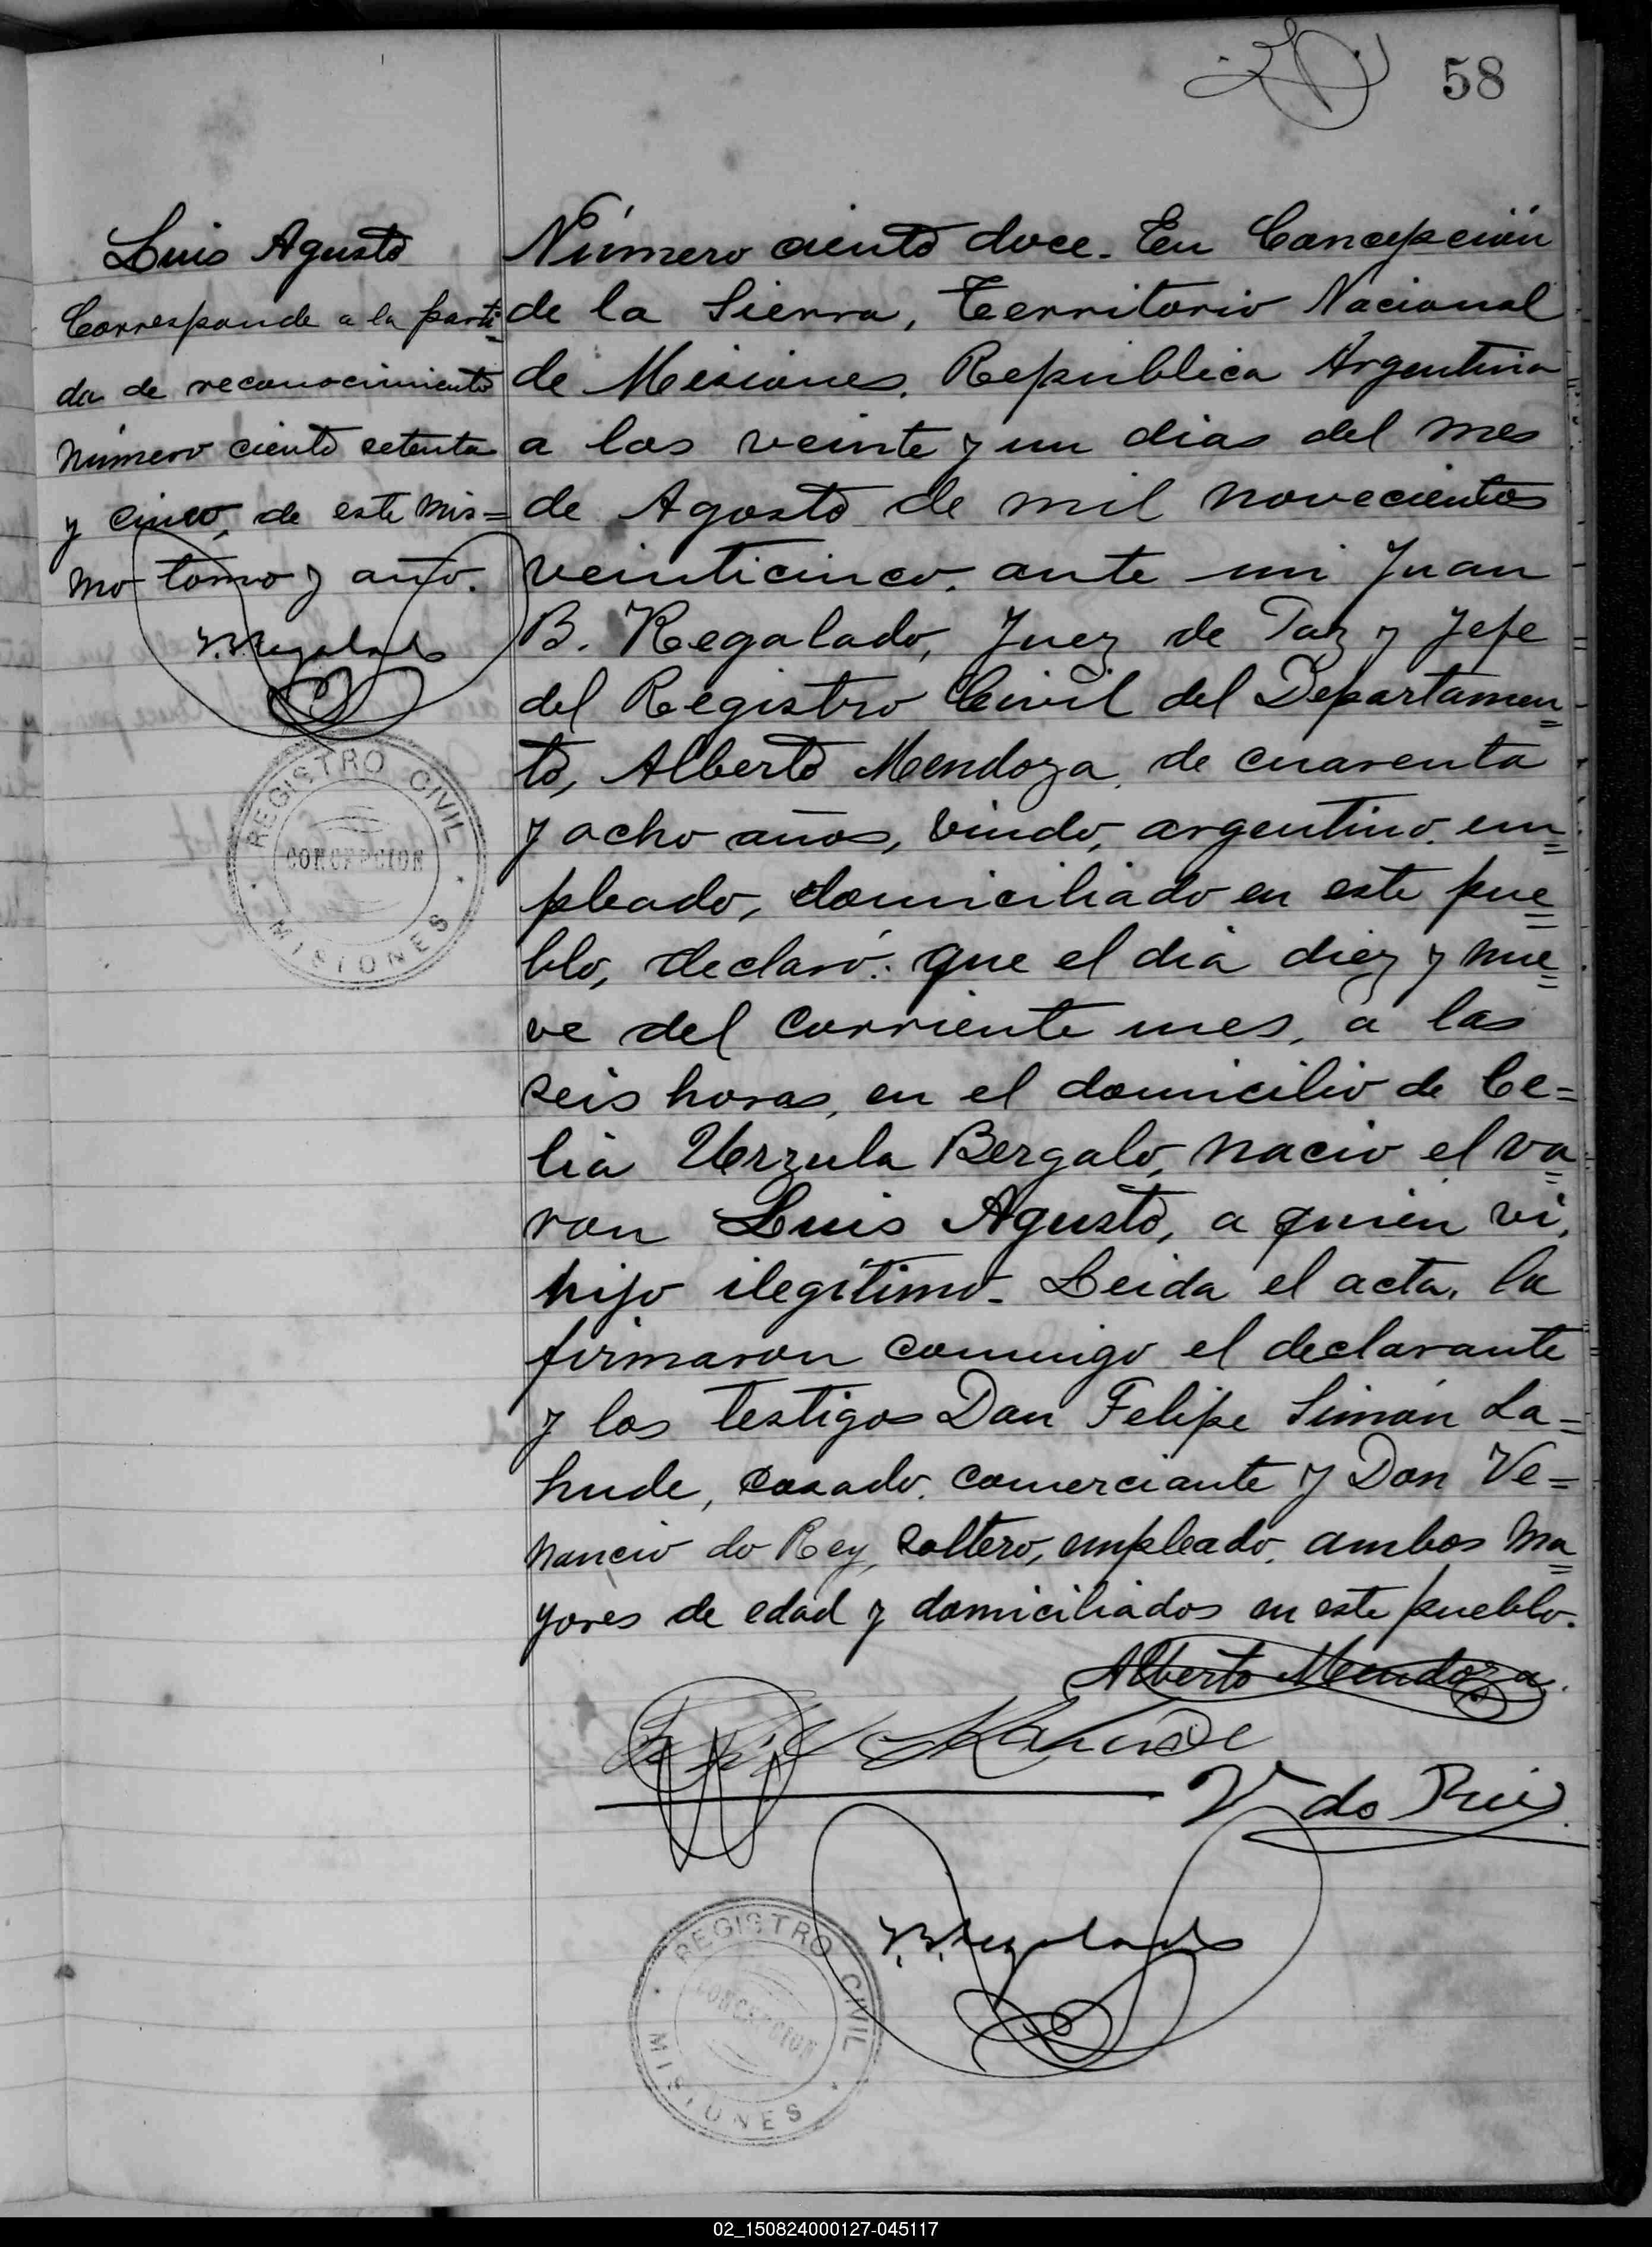 58
Luis Agusto
Corresponde a la parti=
da de reconocimiento
número ciento setenta
y cinco, de este mis=
mo tomo y año.
J.B. Regalado
REGISTRO CIVIL
CONCEPCION
MISIONES
Número ciento doce. En Concepción
de la Sierra, Territorio Nacional
de Misiones, República Argentina
a los veinte y un dias del mes
de Agosto de mil novecientos
veinticinco, ante mi Juan
B. Regalado, Juez de Paz y Jefe
del Registro Civil del Departamen=
to, Alberto Mendoza, de cuarenta
y ocho años, viudo, argentino, em=
pleado, domiciliado en este pue=
blo, declaró: que el dia diez y nue=
ve del corriente mes, a las
seis horas, en el domicilio de Ce=
lia Urzula Bergalo, nacio el va=
ron Luis Agusto, a quien vi,
hijo ilegítimo. Leida el acta, la
firmaron conmigo el declarante
y los testigos Don Felipe Simón La=
hude, casado, comerciante y Don Ve=
nancio do Rey, soltero, empleado, ambos ma=
yores de edad y domiciliados en este pueblo.
Alberto Mendoza
Lahude
V. do Rei
J.B. Regalado
REGISTRO CIVIL
CONCEPCION
MISIONES
02_150824000127-045117